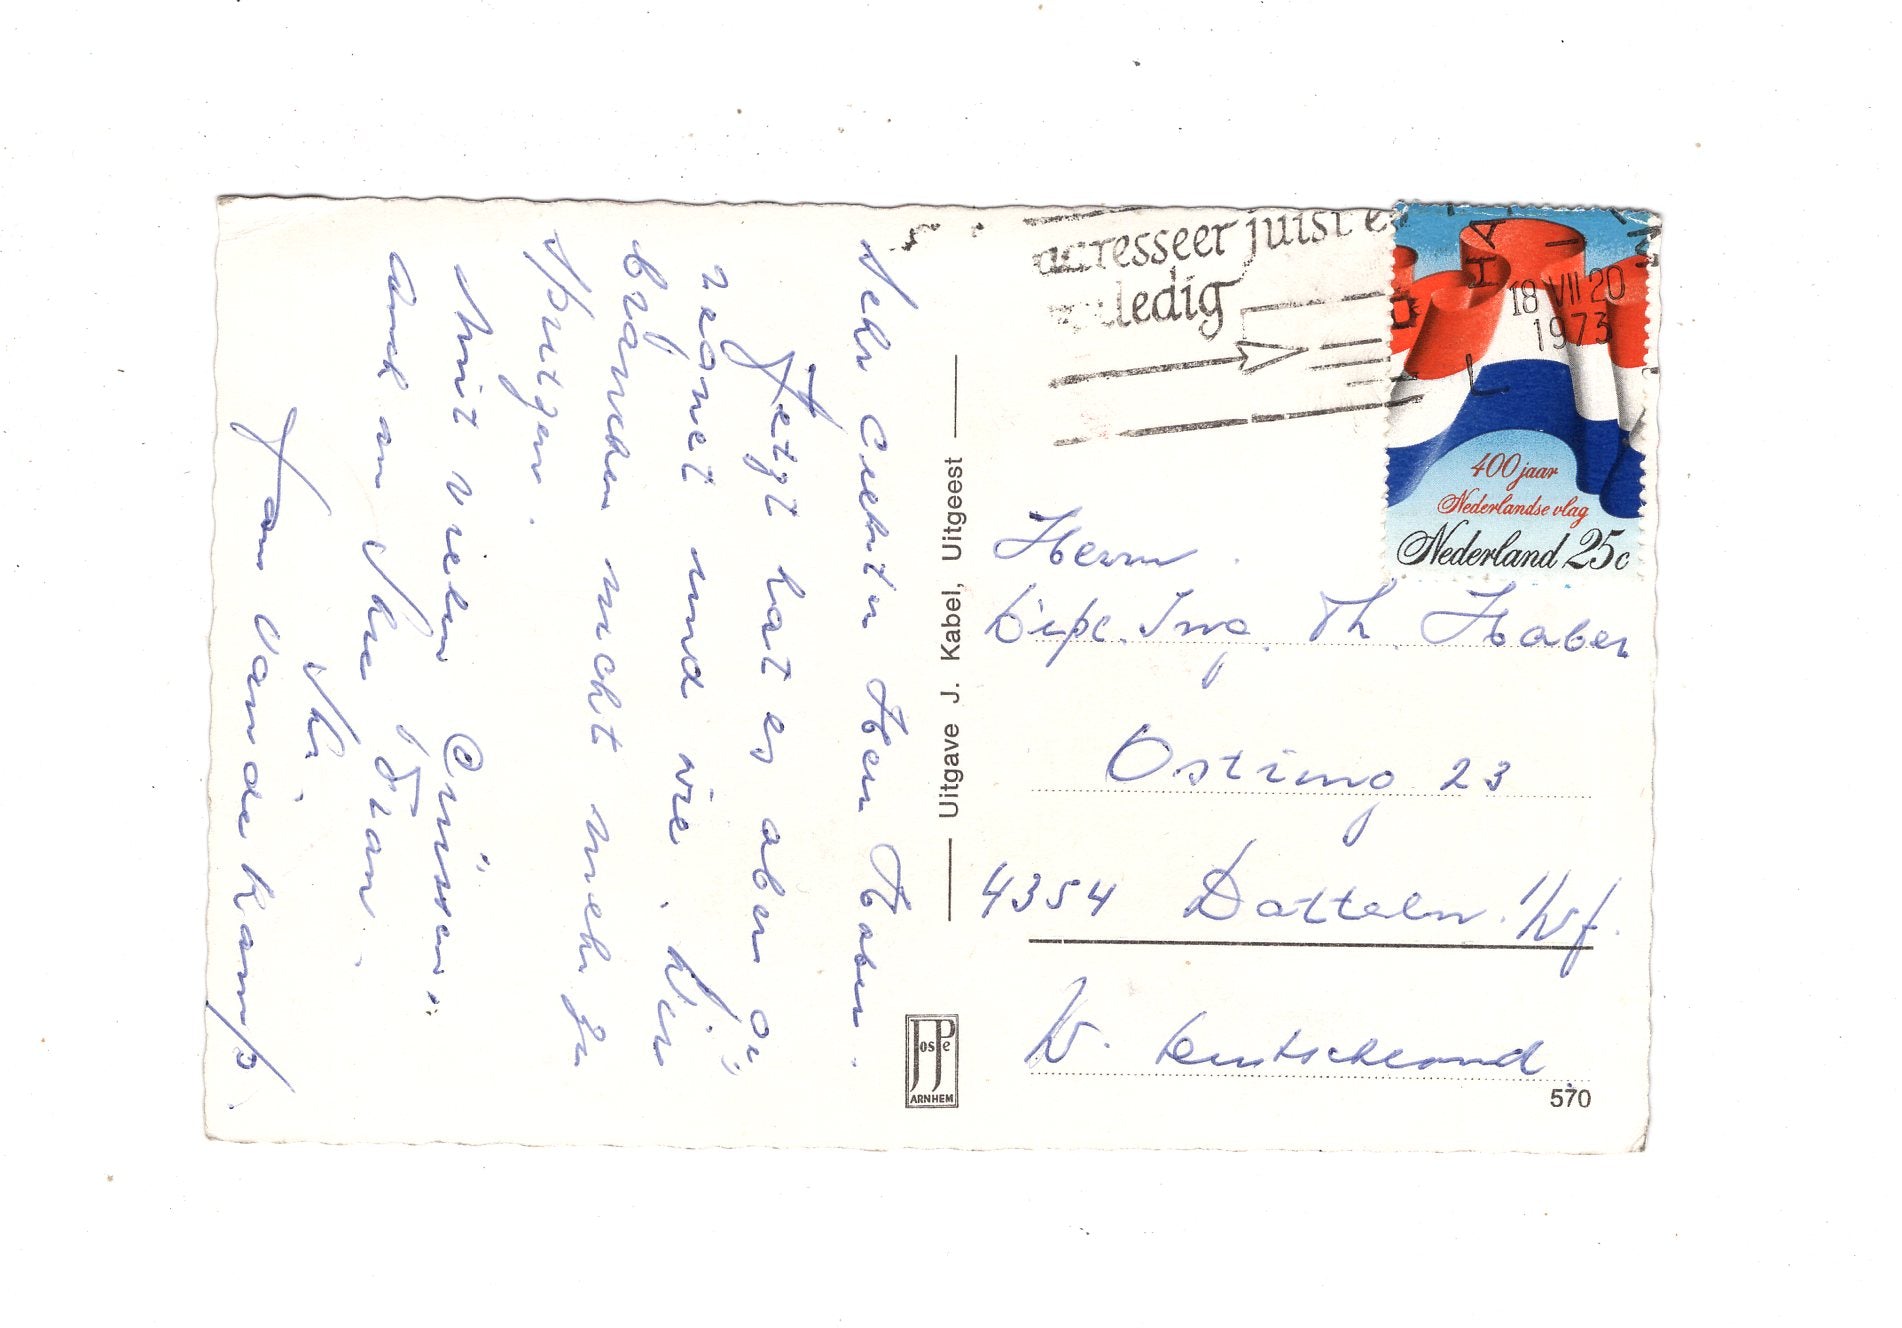 Sehr geehrter Herr Haber.
Jetzt hat es aber
regnet und wie. Wir
brauchen nicht mehr zu
spritzen.
Mit vielen Grüssen,
auch an Ihre Frau.
Ihr.
Jan van de Kamp.
Uitgave J. Kabel, Uitgeest
JosPe
ARNHEM
adresseer juist en
volledig
18 VII 20
1973
400 jaar
Nederlandse vlag
Nederland 25c
Herrn
Dipl. Ing. Th Haber
Ostring 23
4354 Datteln. Wf.
W. Deutschland
570